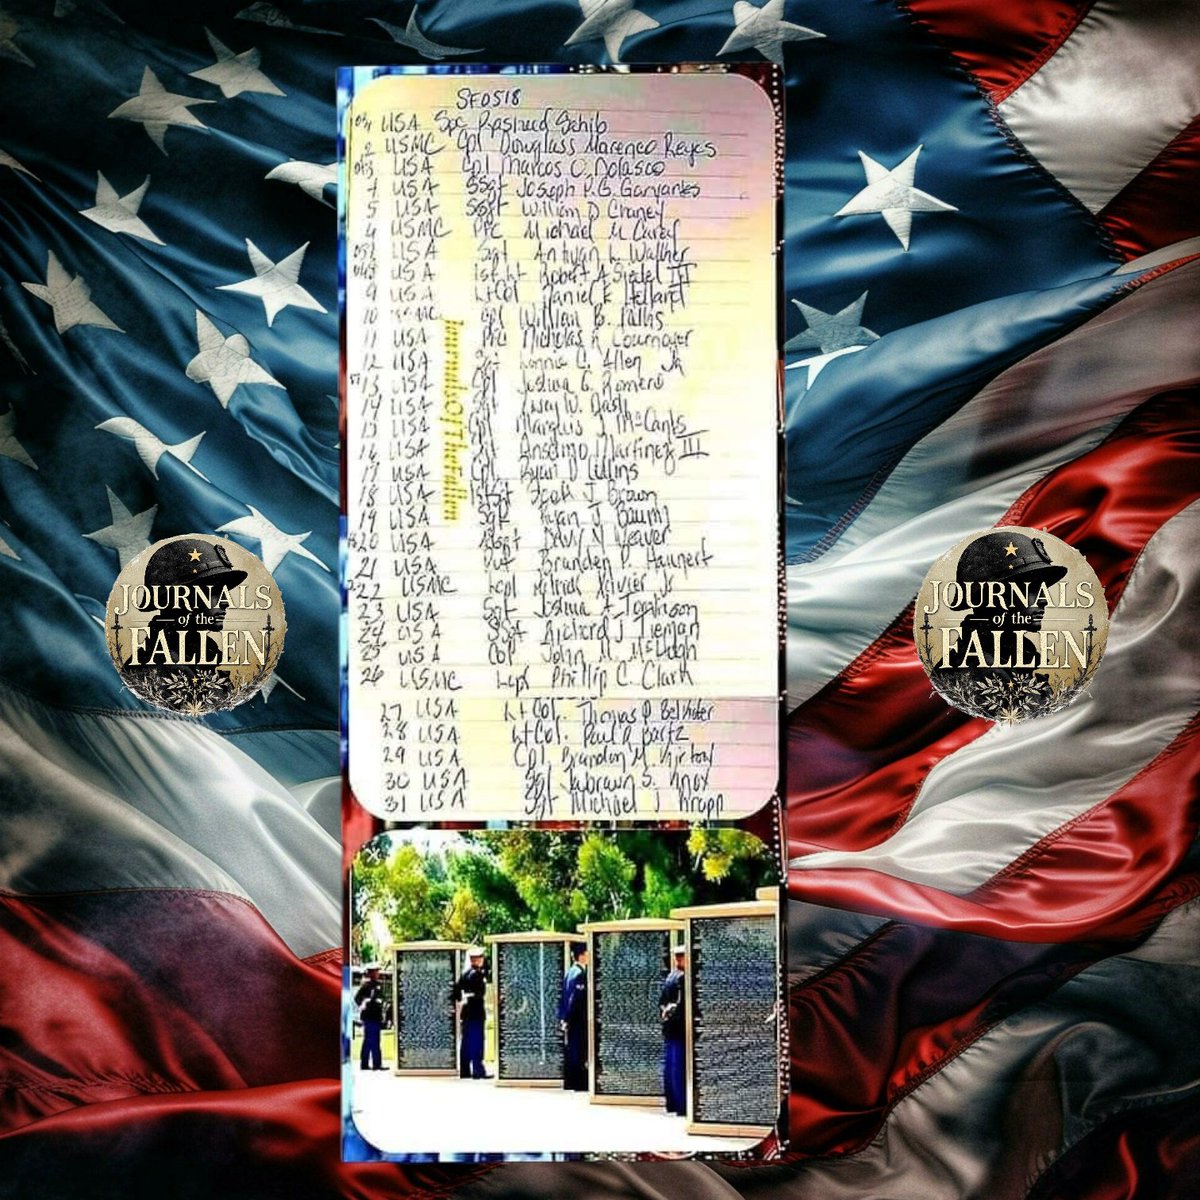 SE0518
USA Spc Rasheed Sahib
2 USMC Cpl Douglass Marenco Reyes
USA Cpl Marcos O. Nolasco
4 USA SSgt Joseph P.G. Garyantes
5 USA Sgt William D Chaney
6 USMC PFC Michael M Carey
USA Sgt Antwan L Walker
USA 1st Lt Robert A Seidel III
9 USA LtCol Daniel E Holland
10 USMC Cpl William B. Fulks
11 USA Pfc Nicholas R Cournoyer
12 USA Sgt Lonnie C. Allen Jr
13 USA Cpl Joshua G. Romero
14 USA Sgt W. Dash
15 USA Sgt Marquis J McCants
16 USA Sgt Anselmo Martinez III
17 USA Cpl Ryan D Collins
18 USA 1stSgt Scott J Brown
19 USA Sgt Ryan J Baum
20 USA SSgt David N Weaver
21 USA Pvt Branden P. Haunert
22 USMC LCpl Patrick Xavier Jr
23 USA Sgt Joshua A Tomlinson
24 USA SSgt Richard J Tieman
25 USA Col John M McHugh
26 USMC Lcpl Phillip C. Clark
27 USA LtCol. Thomas P Belkofer
28 USA LtCol. Paul R Bartz
29 USA Cpl. Brandon M. Kirton
30 USA Sgt Jabraun S. Knox
31 USA Sgt Michael J Knapp
JournalsOfTheFallen
JOURNALS
of the
FALLEN
JOURNALS
of the
FALLEN